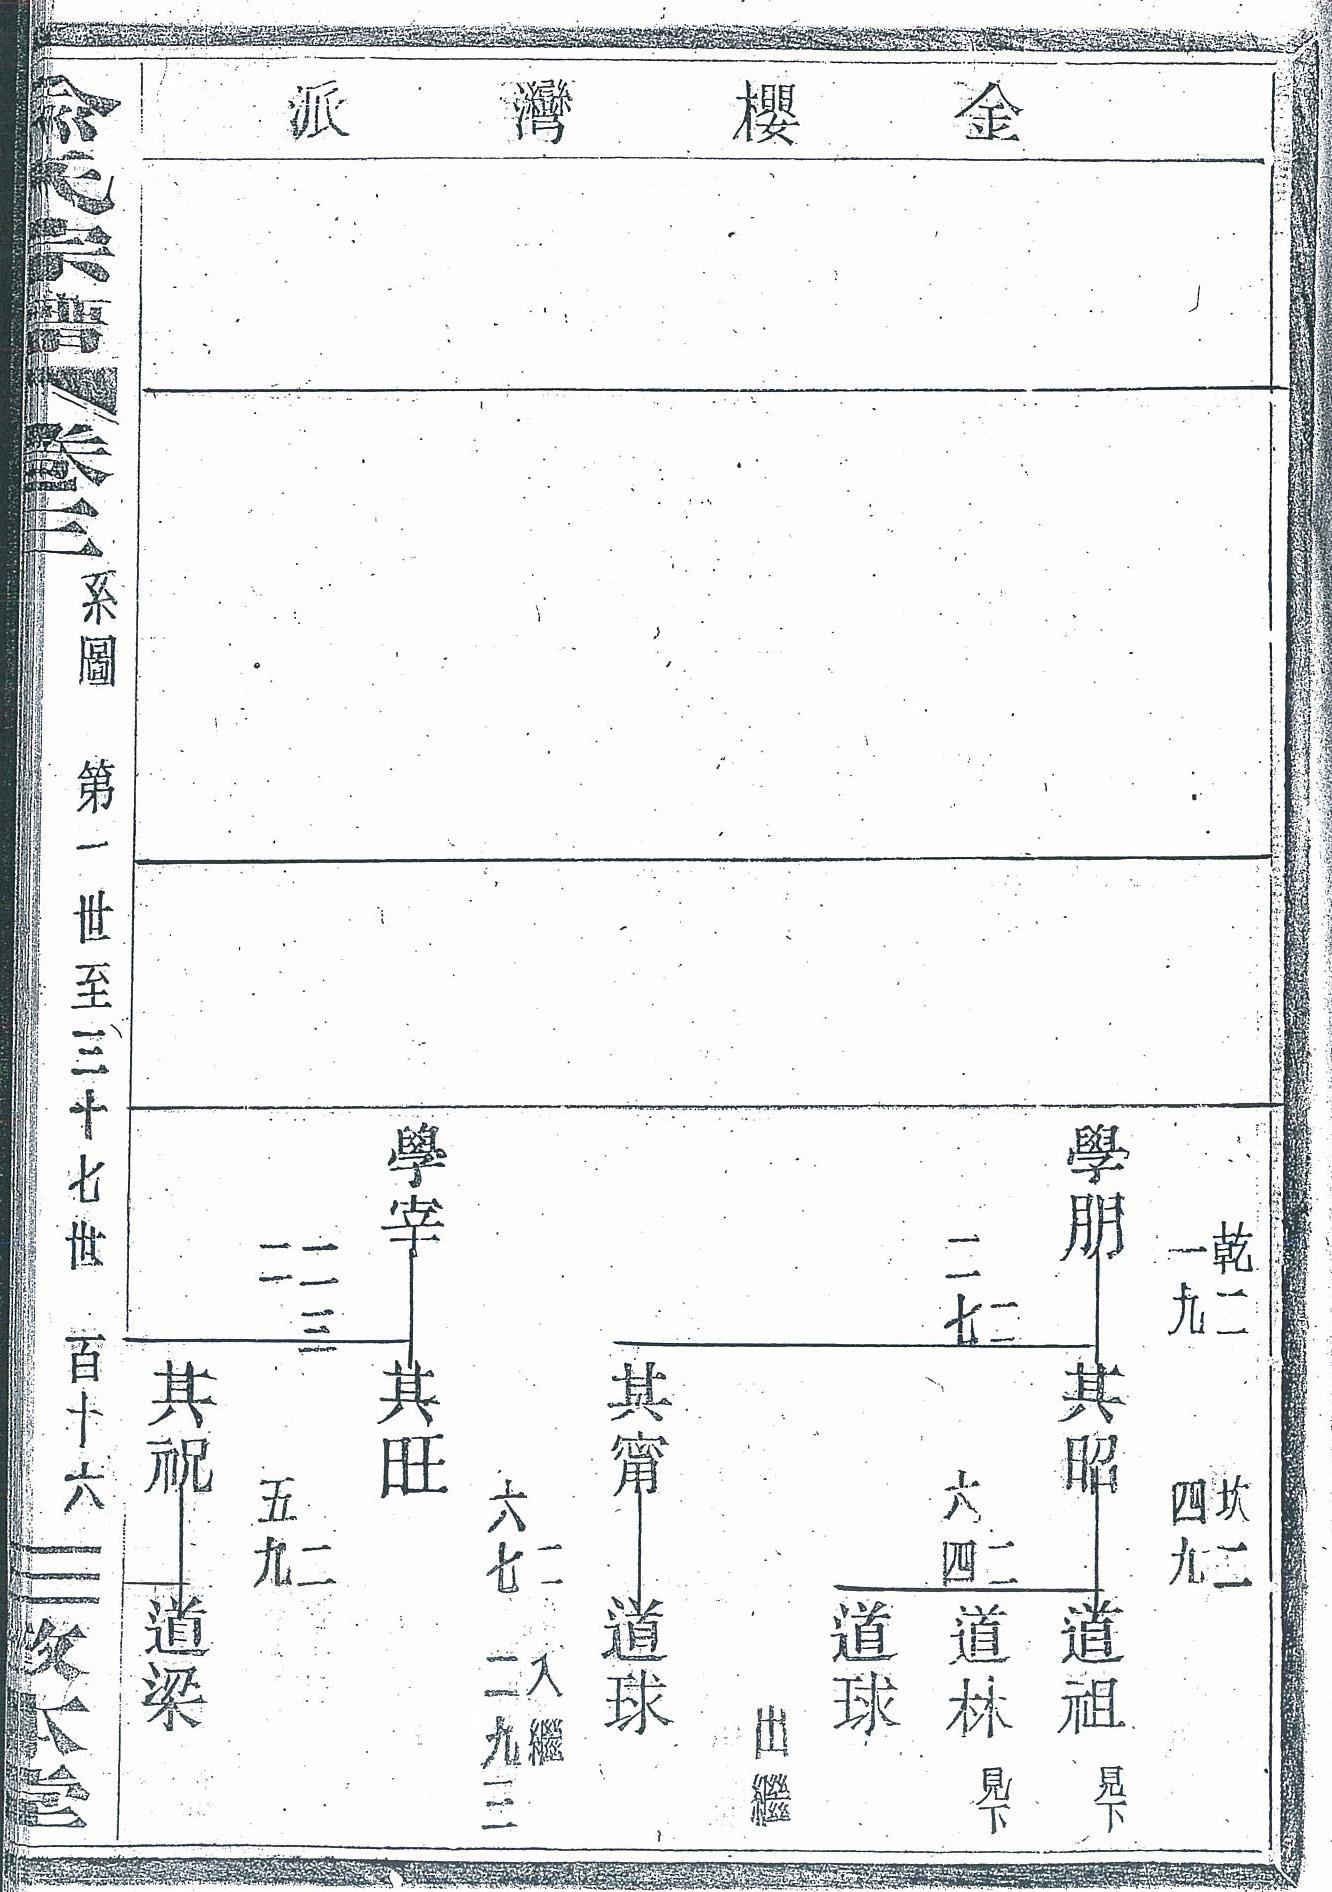 金櫻灣派
乾二
一九
學朋
二
二七
學宰
二一三
二一
坎二
四九
其昭
二
六四
其甯
二
六七
其旺
二
五九
其祝
道祖
見下
道林
見下
道球
出繼
道球
入繼
二九三
道梁
俞氏宗譜
卷三
系圖 第一世至三十七世 百十六
敘本堂